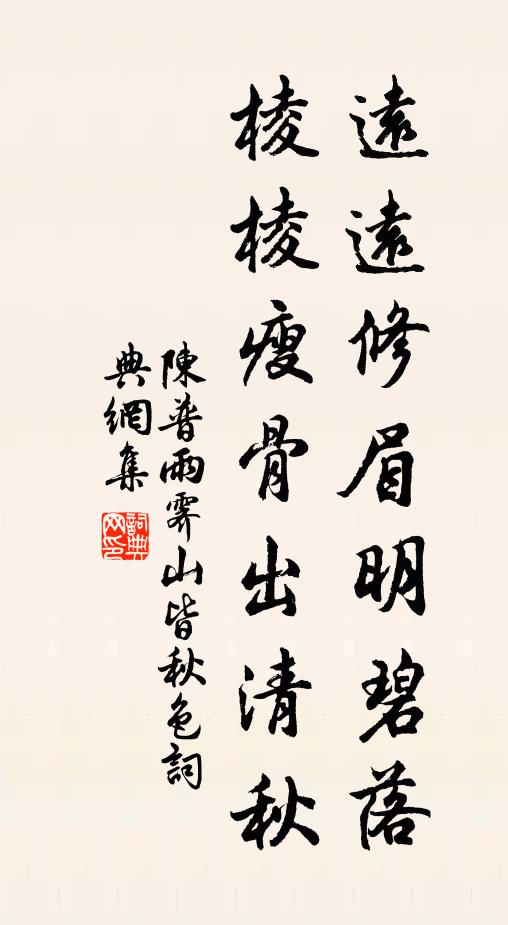 遠遠修眉明碧落
棱棱瘦骨出清秋
陳普雨霽山皆秋色詞
典網集
詞典网印